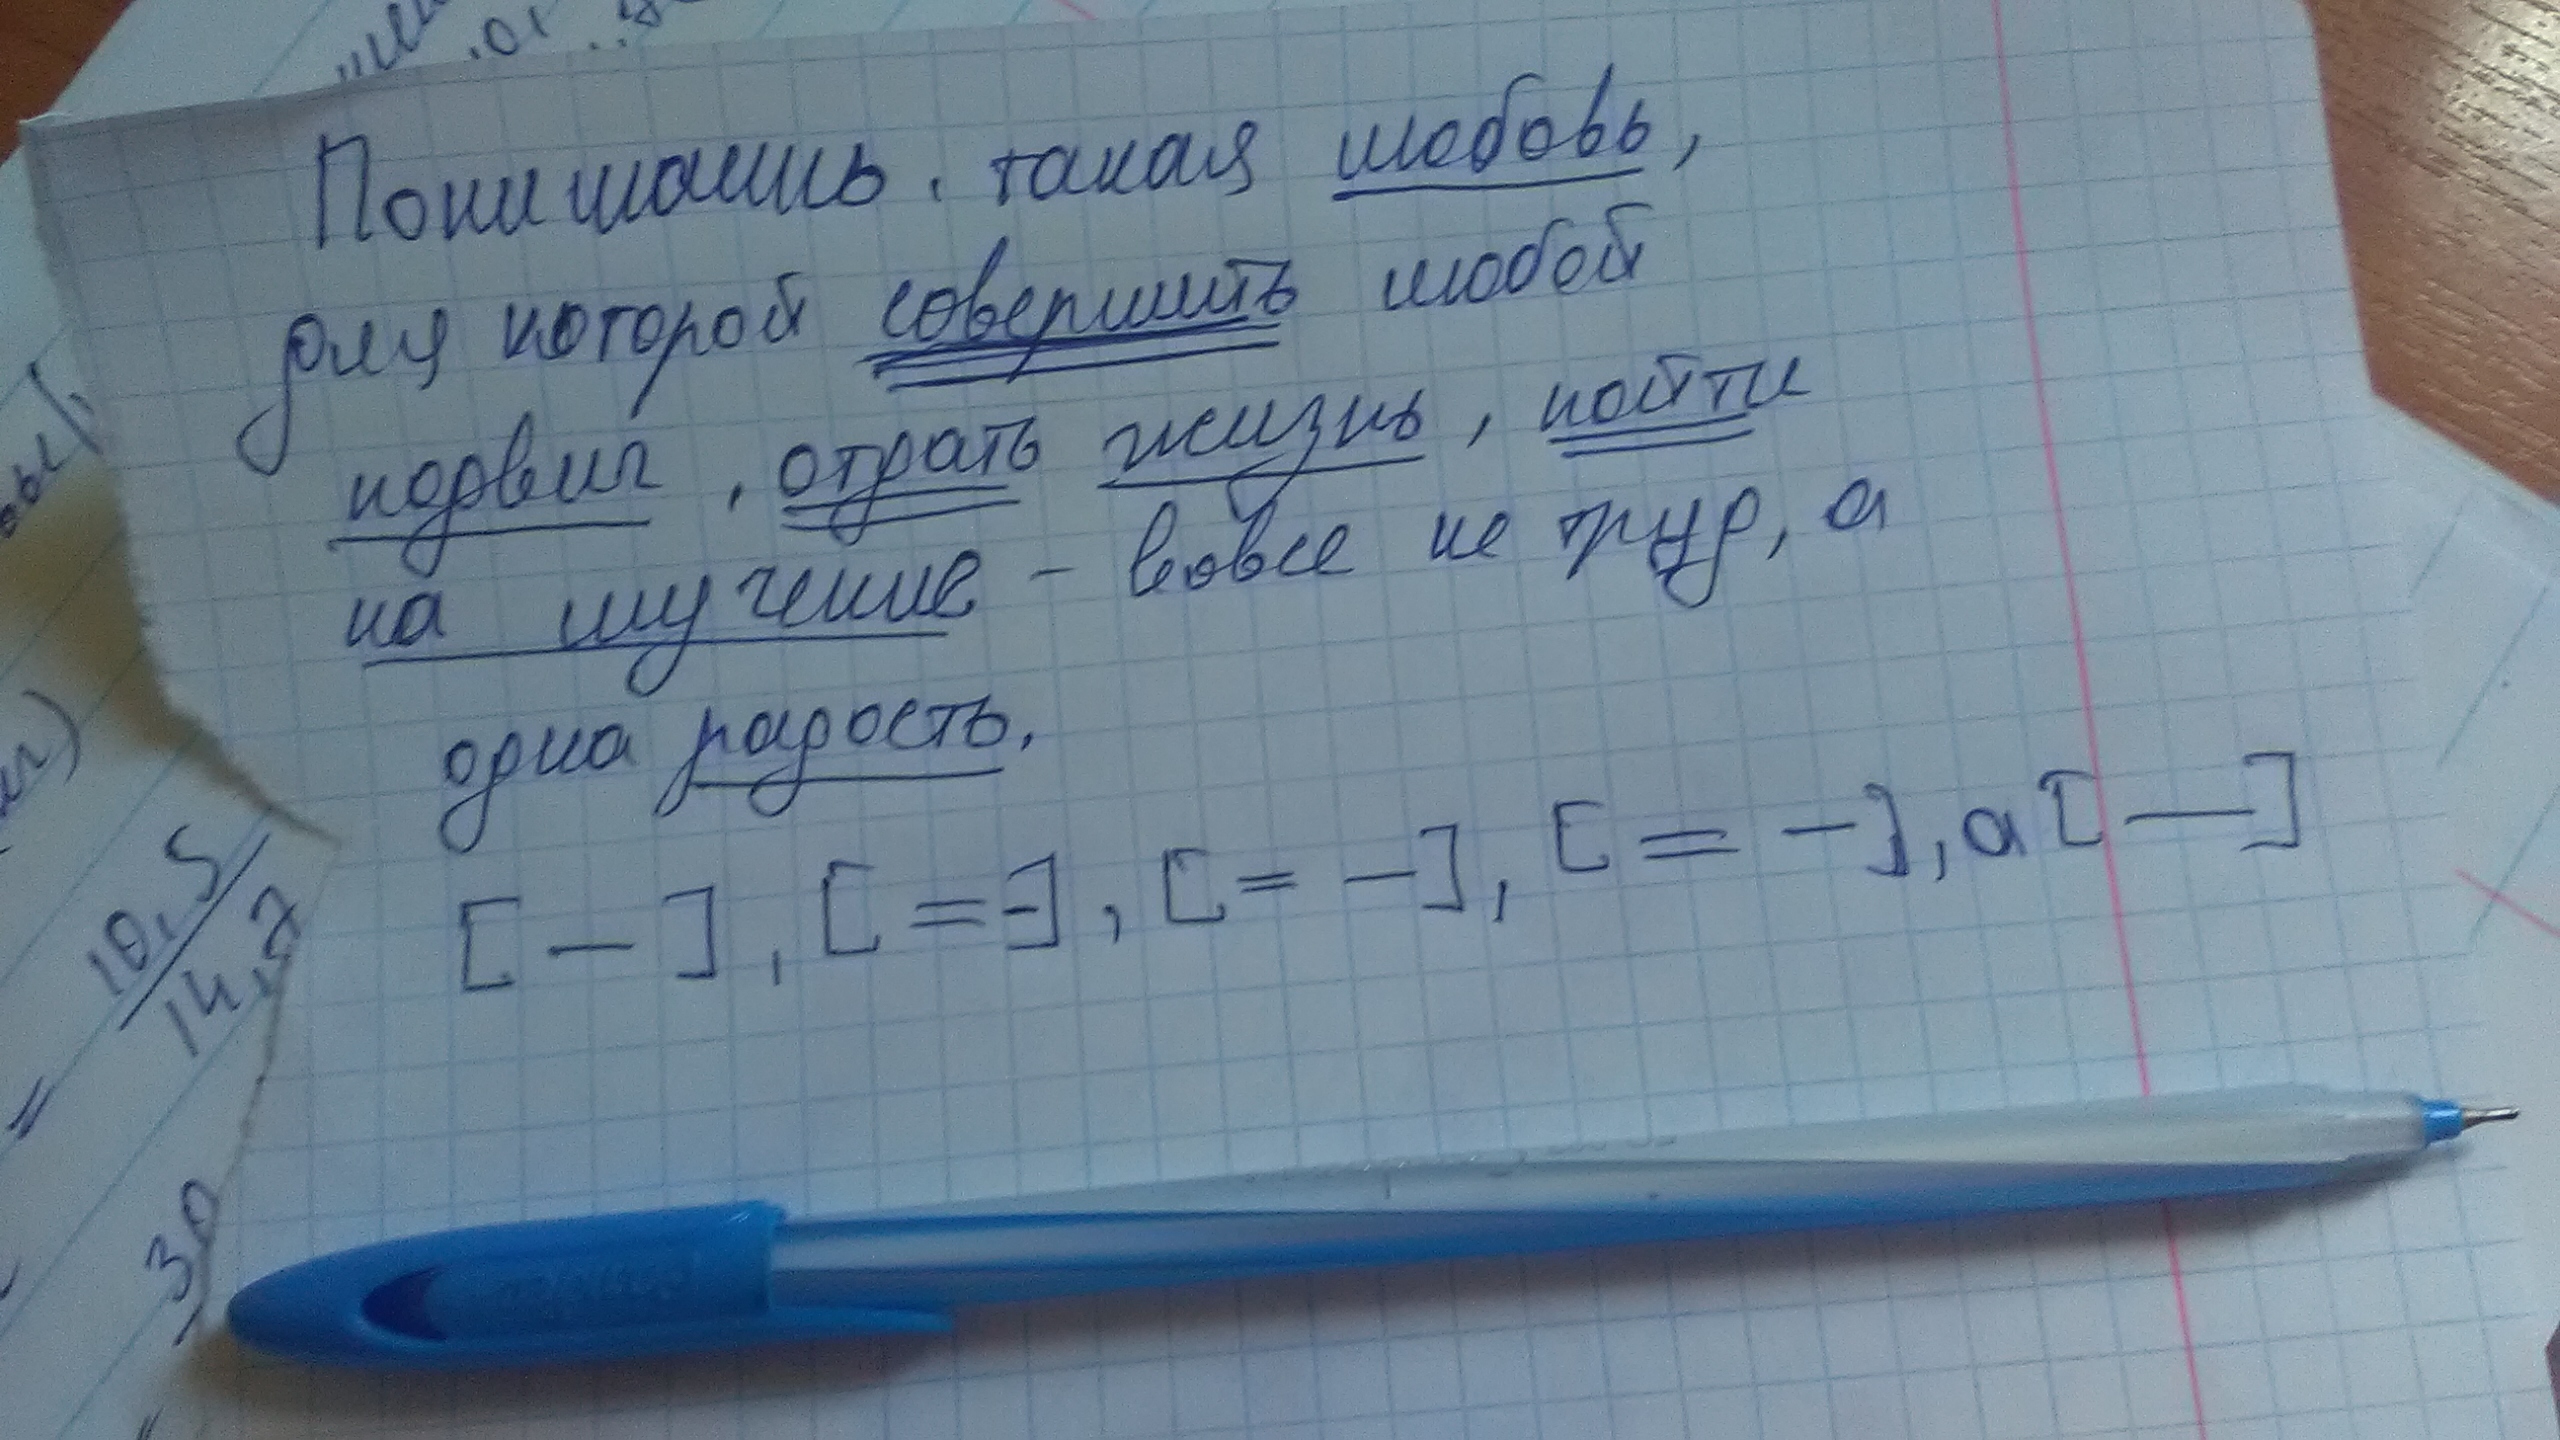 Понимаешь, такая любовь,
для которой совершить любой
подвиг, отдать жизнь, пойти
на мучение - вовсе не труд, а
одна радость.
[ — ], [ = - ], [ = — ], [ = — ], а [ — ]
10,5
14,7
30